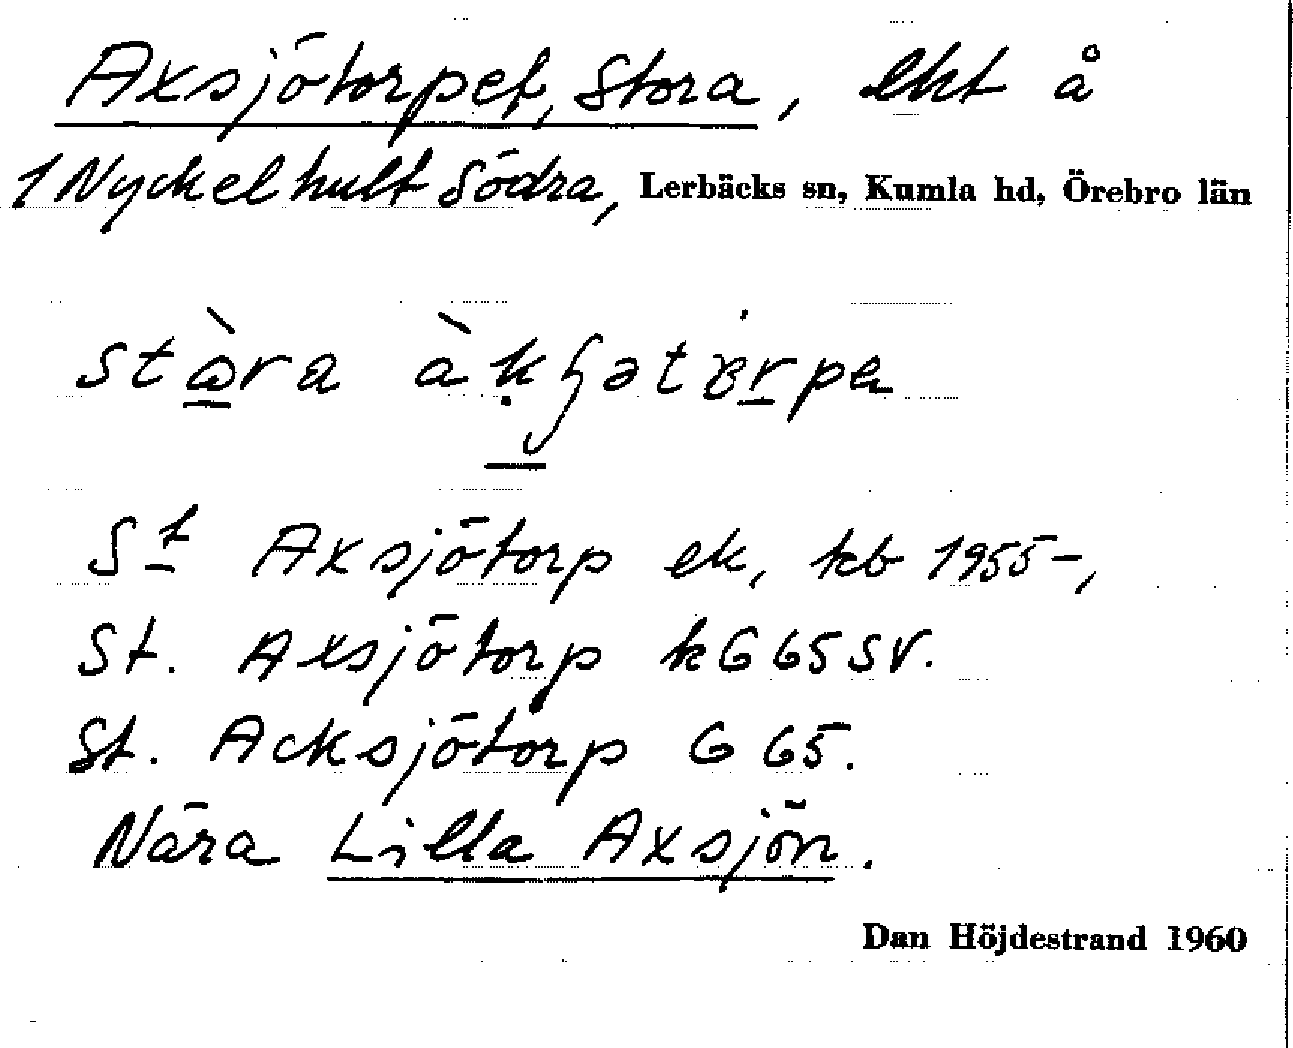 Axsjötorpet, Stora, lht å
1 Nyckelhult Södra, Lerbäcks sn, Kumla hd, Örebro län
stɷ̀ra
St Axsjötorp ek, kb 1955-,
St. Axsjötorp kG65SV.
St. Acksjötorp G65.
Nära Lilla Axsjön.
Dan Höjdestrand 1960